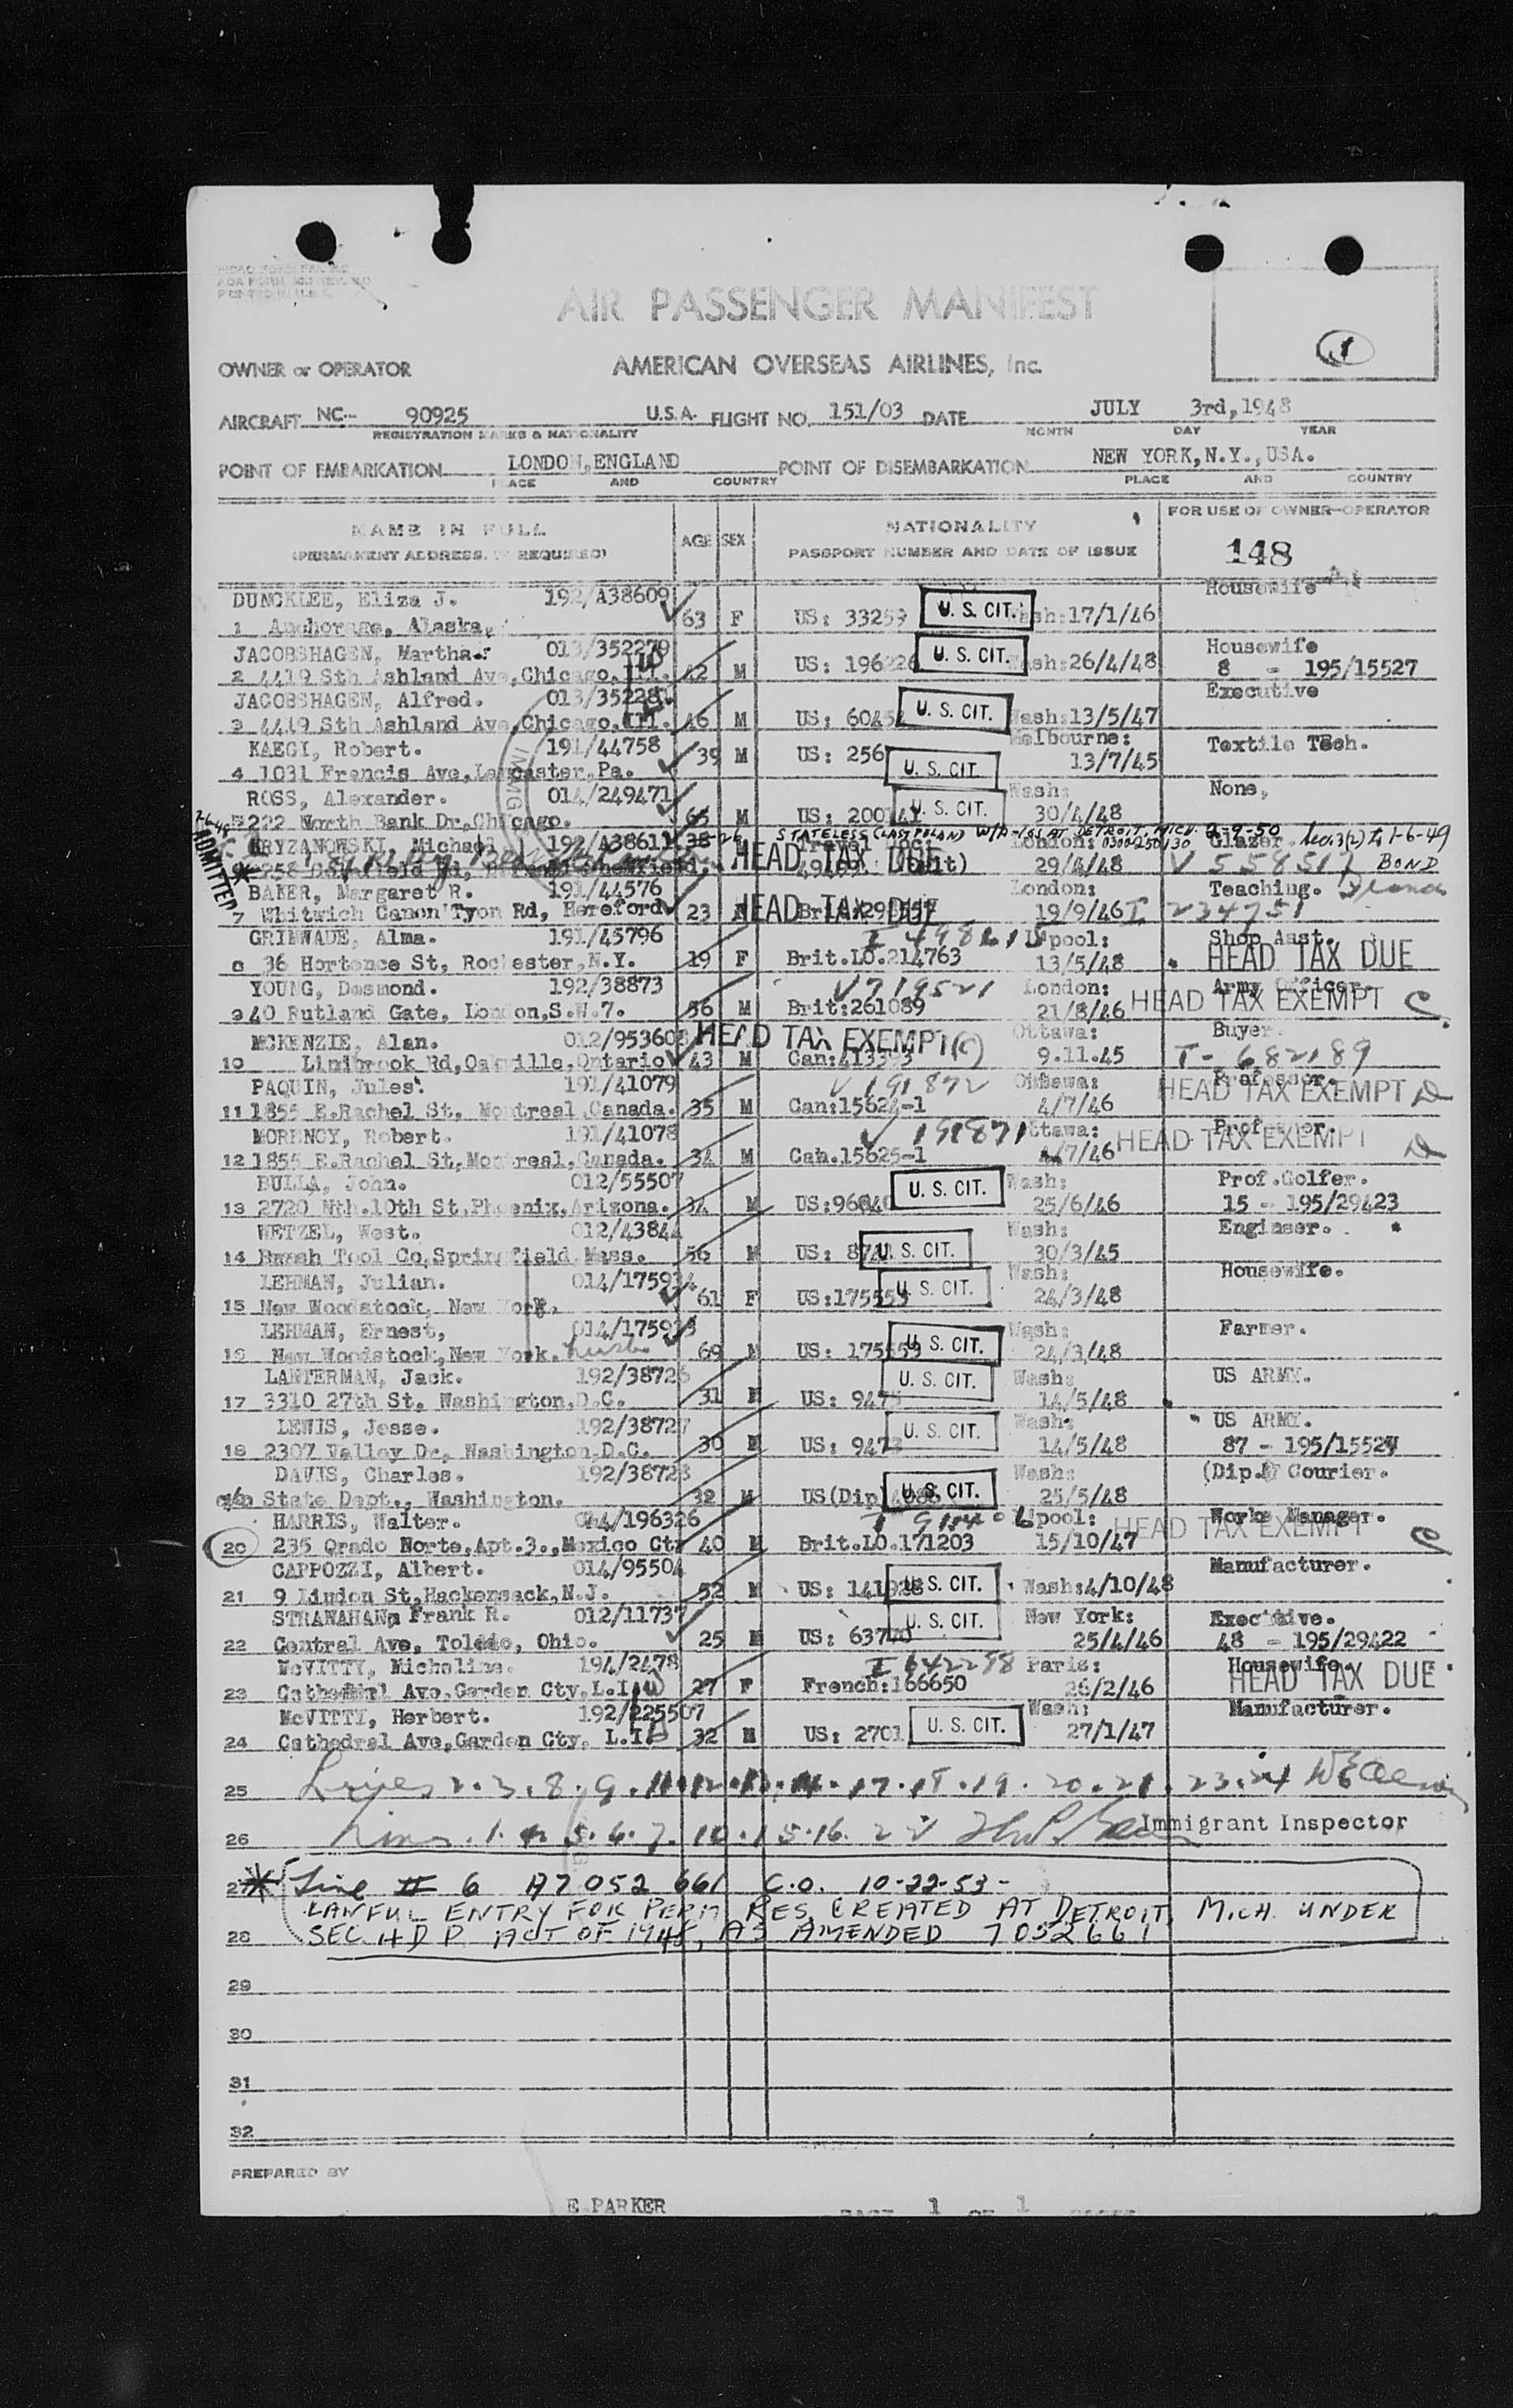 AIR PASSENGER MANIFEST
1
OWNER or OPERATOR AMERICAN OVERSEAS AIRLINES, Inc.
AIRCRAFT NC- 90925 U.S.A. FLIGHT NO. 151/03 DATE JULY 3rd, 1948
REGISTRATION MARKS & NATIONALITY MONTH DAY YEAR
POINT OF EMBARKATION LONDON, ENGLAND POINT OF DISEMBARKATION NEW YORK, N.Y., USA.
PLACE AND COUNTRY PLACE AND COUNTRY
NAME IN FULL AGE SEX NATIONALITY FOR USE OF OWNER-OPERATOR
(PERMANENT ADDRESS, IF REQUIRED) PASSPORT NUMBER AND DATE OF ISSUE 148
DUNCKLEE, Eliza J. 192/A38609 Housewife
1 Anchorage, Alaska, 63 F US: 33259 U. S. CIT. 17/1/46
JACOBSHAGEN, Martha. 013/352279 Housewife
2 4419 Sth Ashland Ave, Chicago, Ill. 42 M US: 196226 U. S. CIT. 26/4/48 8 - 195/15527
JACOBSHAGEN, Alfred. 013/352281 Executive
3 4449 Sth Ashland Ave, Chicago, Ill. 46 M US: 6045 U. S. CIT. Wash:13/5/47
KAEGI, Robert. 191/44758 Melbourne: Textile Tech.
4 1031 Francis Ave, Lancaster, Pa. 39 M US: 256 U. S. CIT. 13/7/45
ROSS, Alexander. 014/249471 Wash: None,
5 222 North Bank Dr, Chicago. 65 M US: 200741 U. S. CIT. 30/4/48
STATELESS (LAST POLAND) W/A-151 AT DETROIT, MICH. 2-9-50
KRYZANOWSKI, Michael 192/A38611 38 Travel Doc London: 0300-250130 Glazer. Sec 3(2) to 1-6-49
ADMITTED HEAD TAX DUE 29/4/48 V 558517 BOND
BAKER, Margaret R. 191/44576 London: Teaching.
7 Whitwich Canon Tyon Rd, Hereford 23 HEAD TAX DUE 19/9/46 I 234751
GRIMWADE, Alma. 191/45796 L'pool: Shop Asst.
8 36 Hortence St, Rochester, N.Y. 19 F Brit.LO.214763 13/5/48 HEAD TAX DUE
YOUNG, Desmond. 192/38873 V719521 London: Army Officer.
9 40 Rutland Gate, London, S.W.7. 56 M Brit:261089 21/8/46 HEAD TAX EXEMPT C
MCKENZIE, Alan. 012/953608 HEAD TAX EXEMPT (C) Ottawa: Buyer.
10 Linibrook Rd, Oakville, Ontario 43 M Can: 9.11.45 I- 682189
PAQUIN, Jules. 191/41079 V 191872 Ottawa: Professor.
11 1855 E.Rachel St, Montreal, Canada. 35 M Can:15624-1 4/7/46 HEAD TAX EXEMPT D
MORENCY, Robert. 191/41078 V 191871 Ottawa: Professor.
12 1855 E.Rachel St, Montreal, Canada. 34 M Can.15625-1 4/7/46 HEAD TAX EXEMPT D
BULLA, John. 012/55507 Wash: Prof.Golfer.
13 2720 Nth.10th St, Phoenix, Arizona. 34 M US:96040 U. S. CIT. 25/6/46 15 - 195/29423
WETZEL, West. 012/43844 Wash: Engineer.
14 Tool Co, Springfield Mass. 56 M US: U. S. CIT. 30/3/45
LEHMAN, Julian. 014/175934 Wash: Housewife.
15 New Woodstock, New York. 61 F US:175553 U. S. CIT. 24/3/48
LEHMAN, Ernest, 014/175933 Wash: Farmer.
16 New Woodstock, New York. 69 M US: 175559 U. S. CIT. 24/3/48
LANTERMAN, Jack. 192/38726 Wash: US ARMY.
17 3310 27th St, Washington, D.C. 31 M US: 9475 U. S. CIT. 14/5/48
LEWIS, Jesse. 192/38727 Wash: US ARMY.
18 2307 Valley Dr, Washington.D.C. 30 M US: 9478 U. S. CIT. 14/5/48 87 - 195/15527
DAVIS, Charles. 192/38728 Wash: (Dip.) Courier.
State Dept., Washington. 32 M US(Dip) U. S. CIT. 25/5/48
HARRIS, Walter. 014/196326 L'pool: Works Manager.
20 235 Grado Norte, Apt.3., Mexico Cty 40 M Brit.LO.171203 15/10/47 HEAD TAX EXEMPT C
CAPPOZZI, Albert. 014/95504 Manufacturer.
21 9 Lindon St, Hackensack, N.J. 52 M US: 141928 U. S. CIT. Wash:4/10/48
STRANAHAN, Frank R. 012/11737 New York: Executive.
22 Central Ave, Toledo, Ohio. 25 M US: 63770 U. S. CIT. 25/4/46 48 - 195/29422
McVITTY, Micheline. 194/2478 I 642298 Paris: Housewife.
23 Cathedral Ave, Garden Cty, L.I. 27 F French:166650 26/2/46 HEAD TAX DUE
McVITTY, Herbert. 192/225507 Wash: Manufacturer.
24 Cathedral Ave, Garden Cty, L.I. 32 M US: 2701 U. S. CIT. 27/1/47
25 Lines 2.3.8.9.11.12.13.14.17.18.19.20.21.23.24
26 Lines.1.4.5.6.7.10.15.16.22 Immigrant Inspector
27 * Line # 6 A7 052 661 C.O. 10-22-53-
LAWFUL ENTRY FOR PERM RES, CREATED AT DETROIT, MICH. UNDER
28 SEC. 4 D P ACT OF 1948, AS AMENDED 7052661
29
30
31
32
PREPARED BY
E.PARKER PAGE 1 OF 1